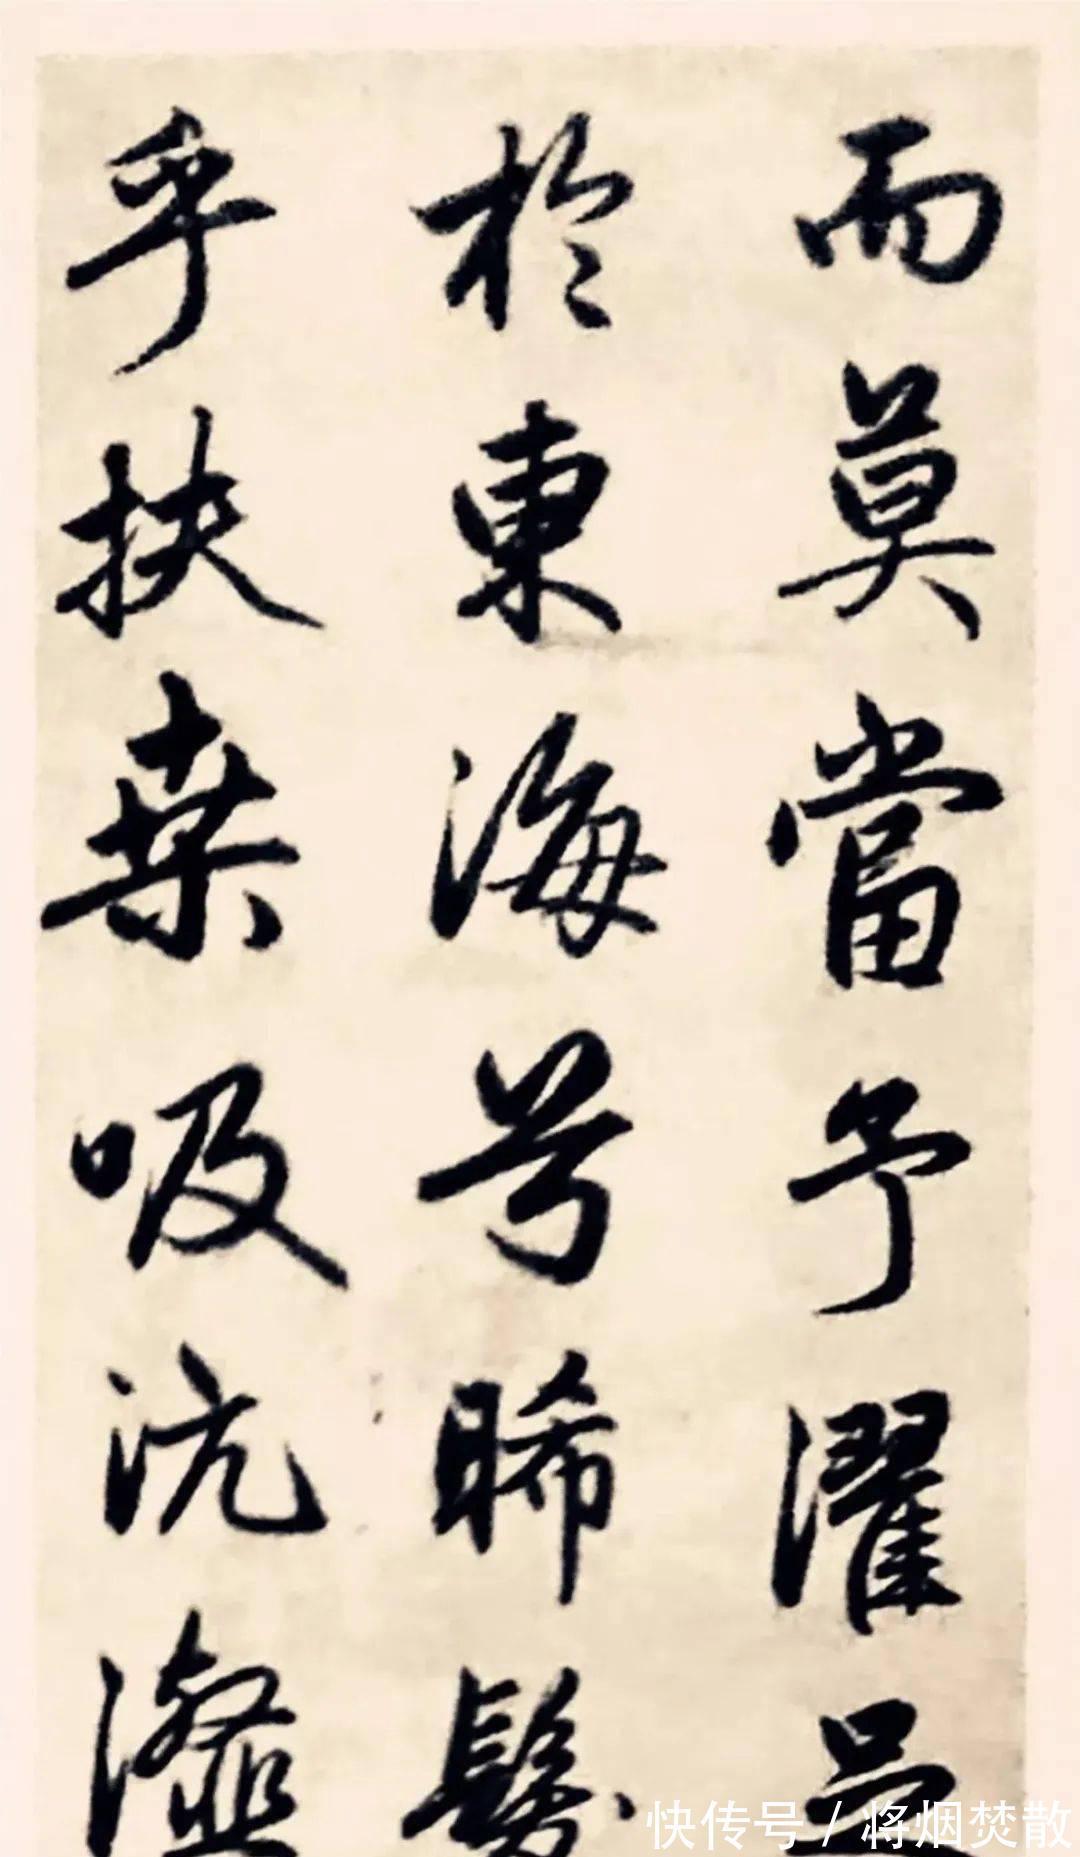 而莫當予濯足
於東海兮晞髮
乎扶桒吸沆瀣
快传号 / 将烟焚散